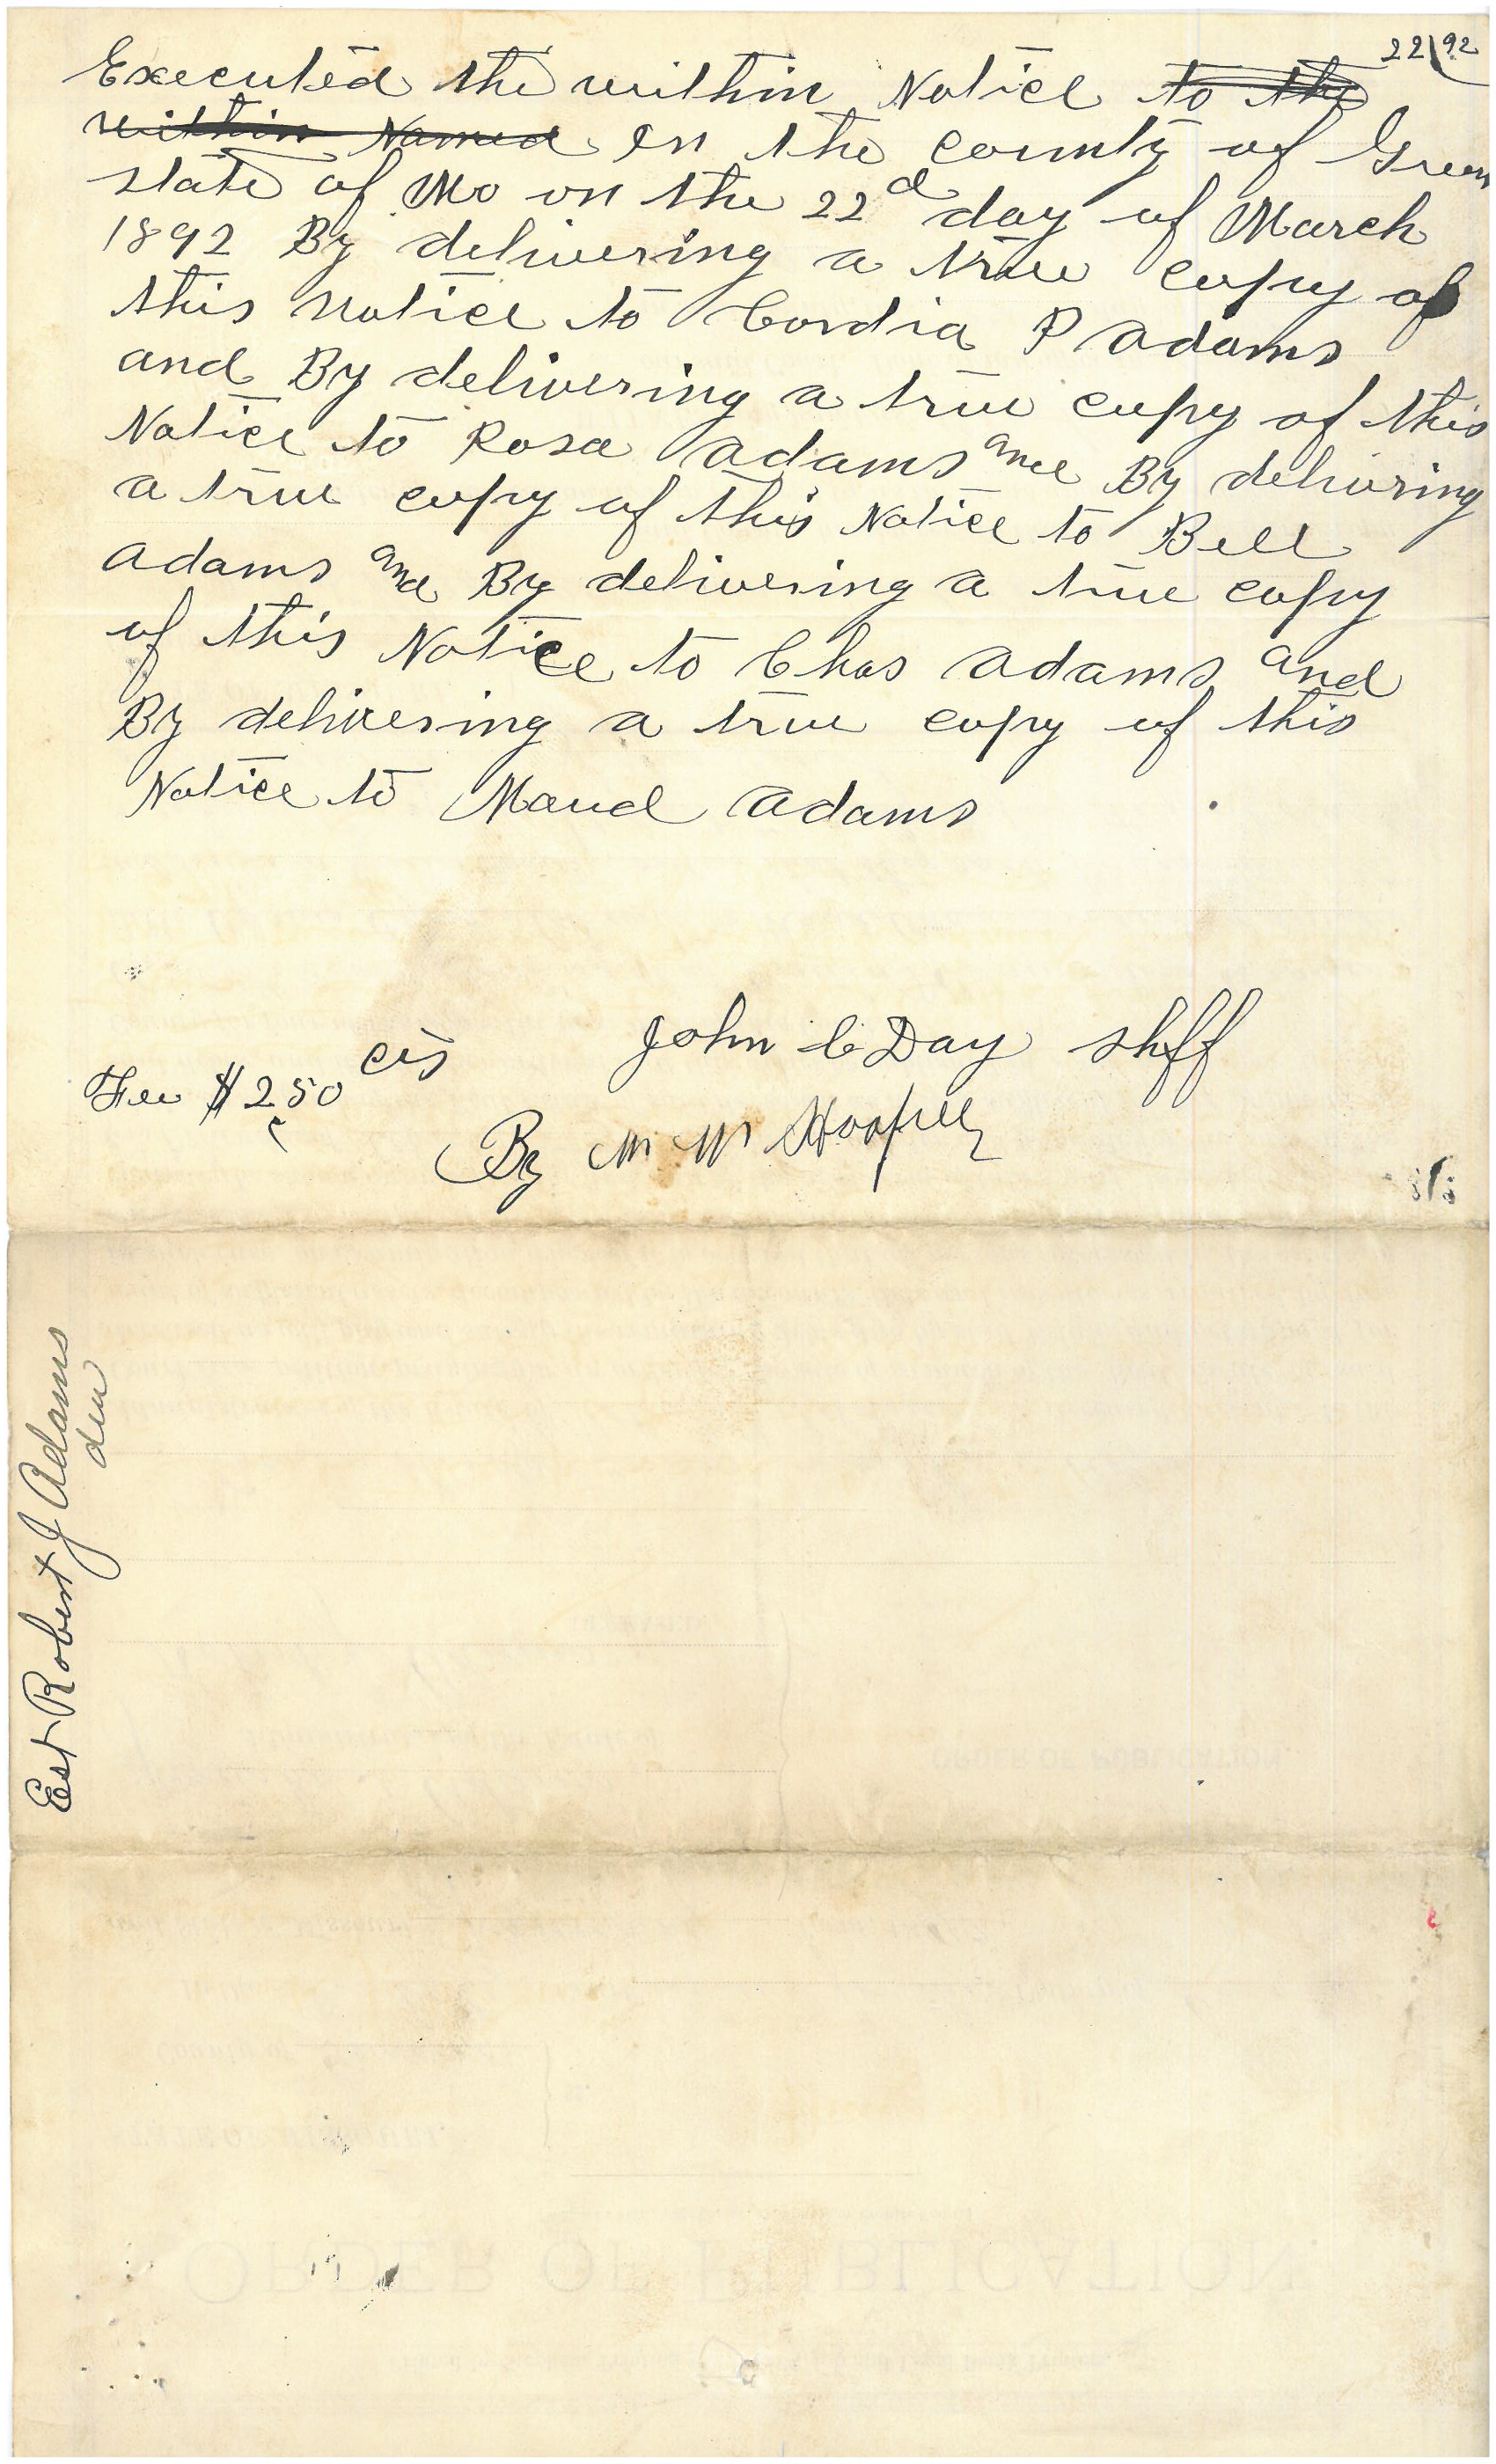 22/92
Executed the within Notice to the
within Named in the county of Green
state of Mo on the 22d day of March
1892 By delivering a true copy of
this notice to Cordia P Adams
and By delivering a true copy of this
Notice to Rosa Adams and By delivering
a true copy of this Notice to Bell
Adams and By delivering a true copy
of this Notice to Chas Adams and
By delivering a true copy of this
Notice to Maud Adams
John C Day Shff
Fee $2.50 cts
By M M Hooper
Est Robert J Adams
ORDER OF PUBLICATION
ORDER OF PUBLICATION